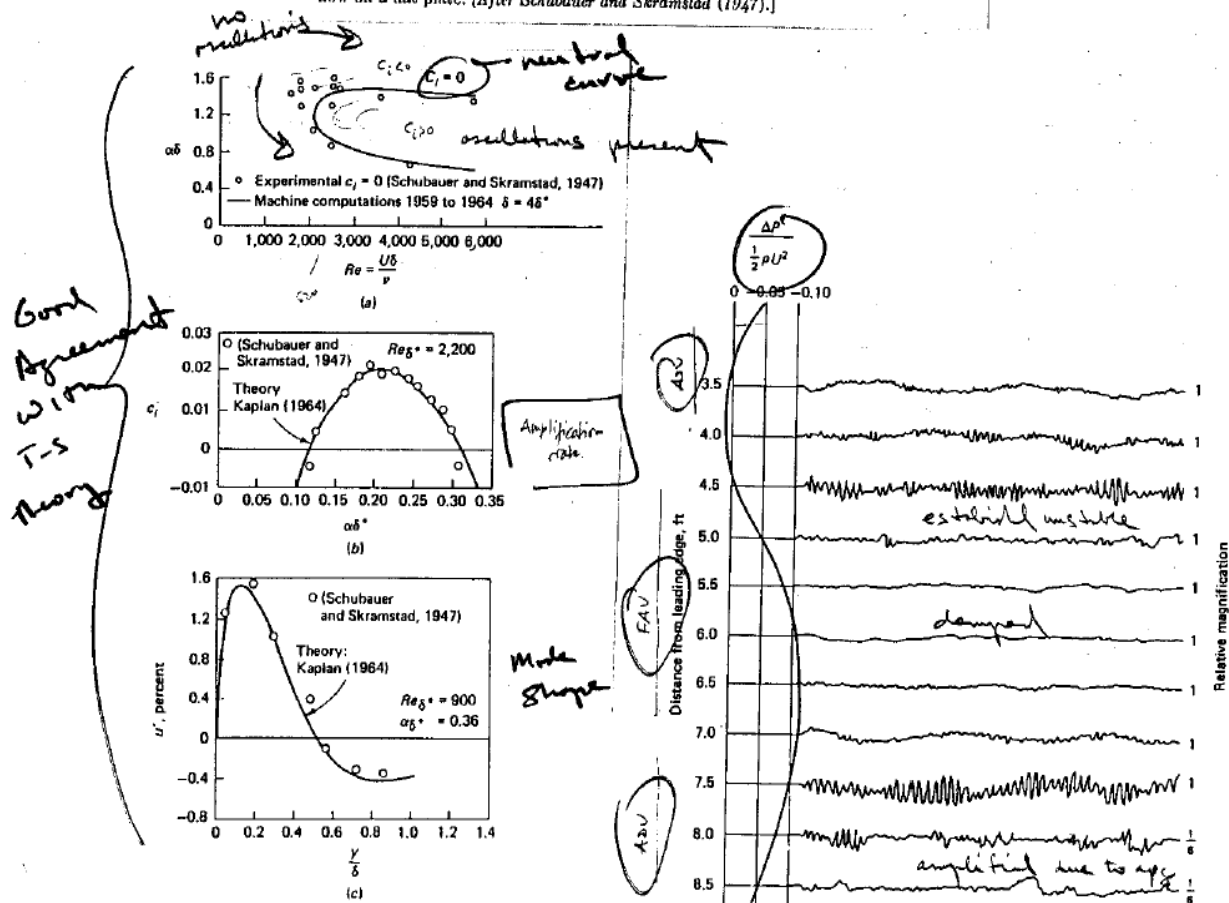 flow on a flat plate. [After Schubauer and Skramstad (1947).]
no
oscillations
neutral
curve
Cᵢ<0
Cᵢ = 0
Cᵢ>0
oscillations present
1.6
1.2
0.8
0.4
0
αδ
Experimental cᵢ = 0 (Schubauer and Skramstad, 1947)
Machine computations 1959 to 1964 δ = 4δ*
0 1,000 2,000 3,000 4,000 5,000 6,000
Re = Uδ/ν
(a)
Good
Agreement
with
T-S
Theory
0.03
0.02
0.01
0
−0.01
cᵢ
(Schubauer and
Skramstad, 1947)
Reδ* = 2,200
Theory
Kaplan (1964)
0 0.05 0.10 0.15 0.20 0.25 0.30 0.35
αδ*
(b)
Amplification
rate.
1.6
1.2
0.8
0.4
0
−0.4
−0.8
u', percent
(Schubauer
and Skramstad, 1947)
Theory:
Kaplan (1964)
Reδ* = 900
αδ* = 0.36
0 0.2 0.4 0.6 0.8 1.0 1.2 1.4
y/δ
(c)
Mode
Shape
Δp
½ρU²
0 −0.05 −0.10
Adv
FAV
Adv
Distance from leading edge, ft
Relative magnification
3.5 1
4.0 1
4.5 1
unstable
5.0 1
5.5 1
damped
6.0 1
6.5 1
7.0 1
7.5 1
8.0 1/6
amplified due to apg
8.5 1/6